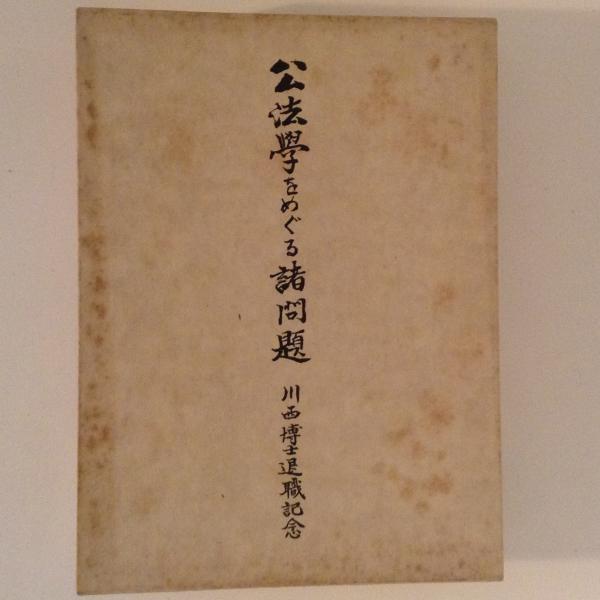 公法學をめぐる諸問題
川西博士退職記念